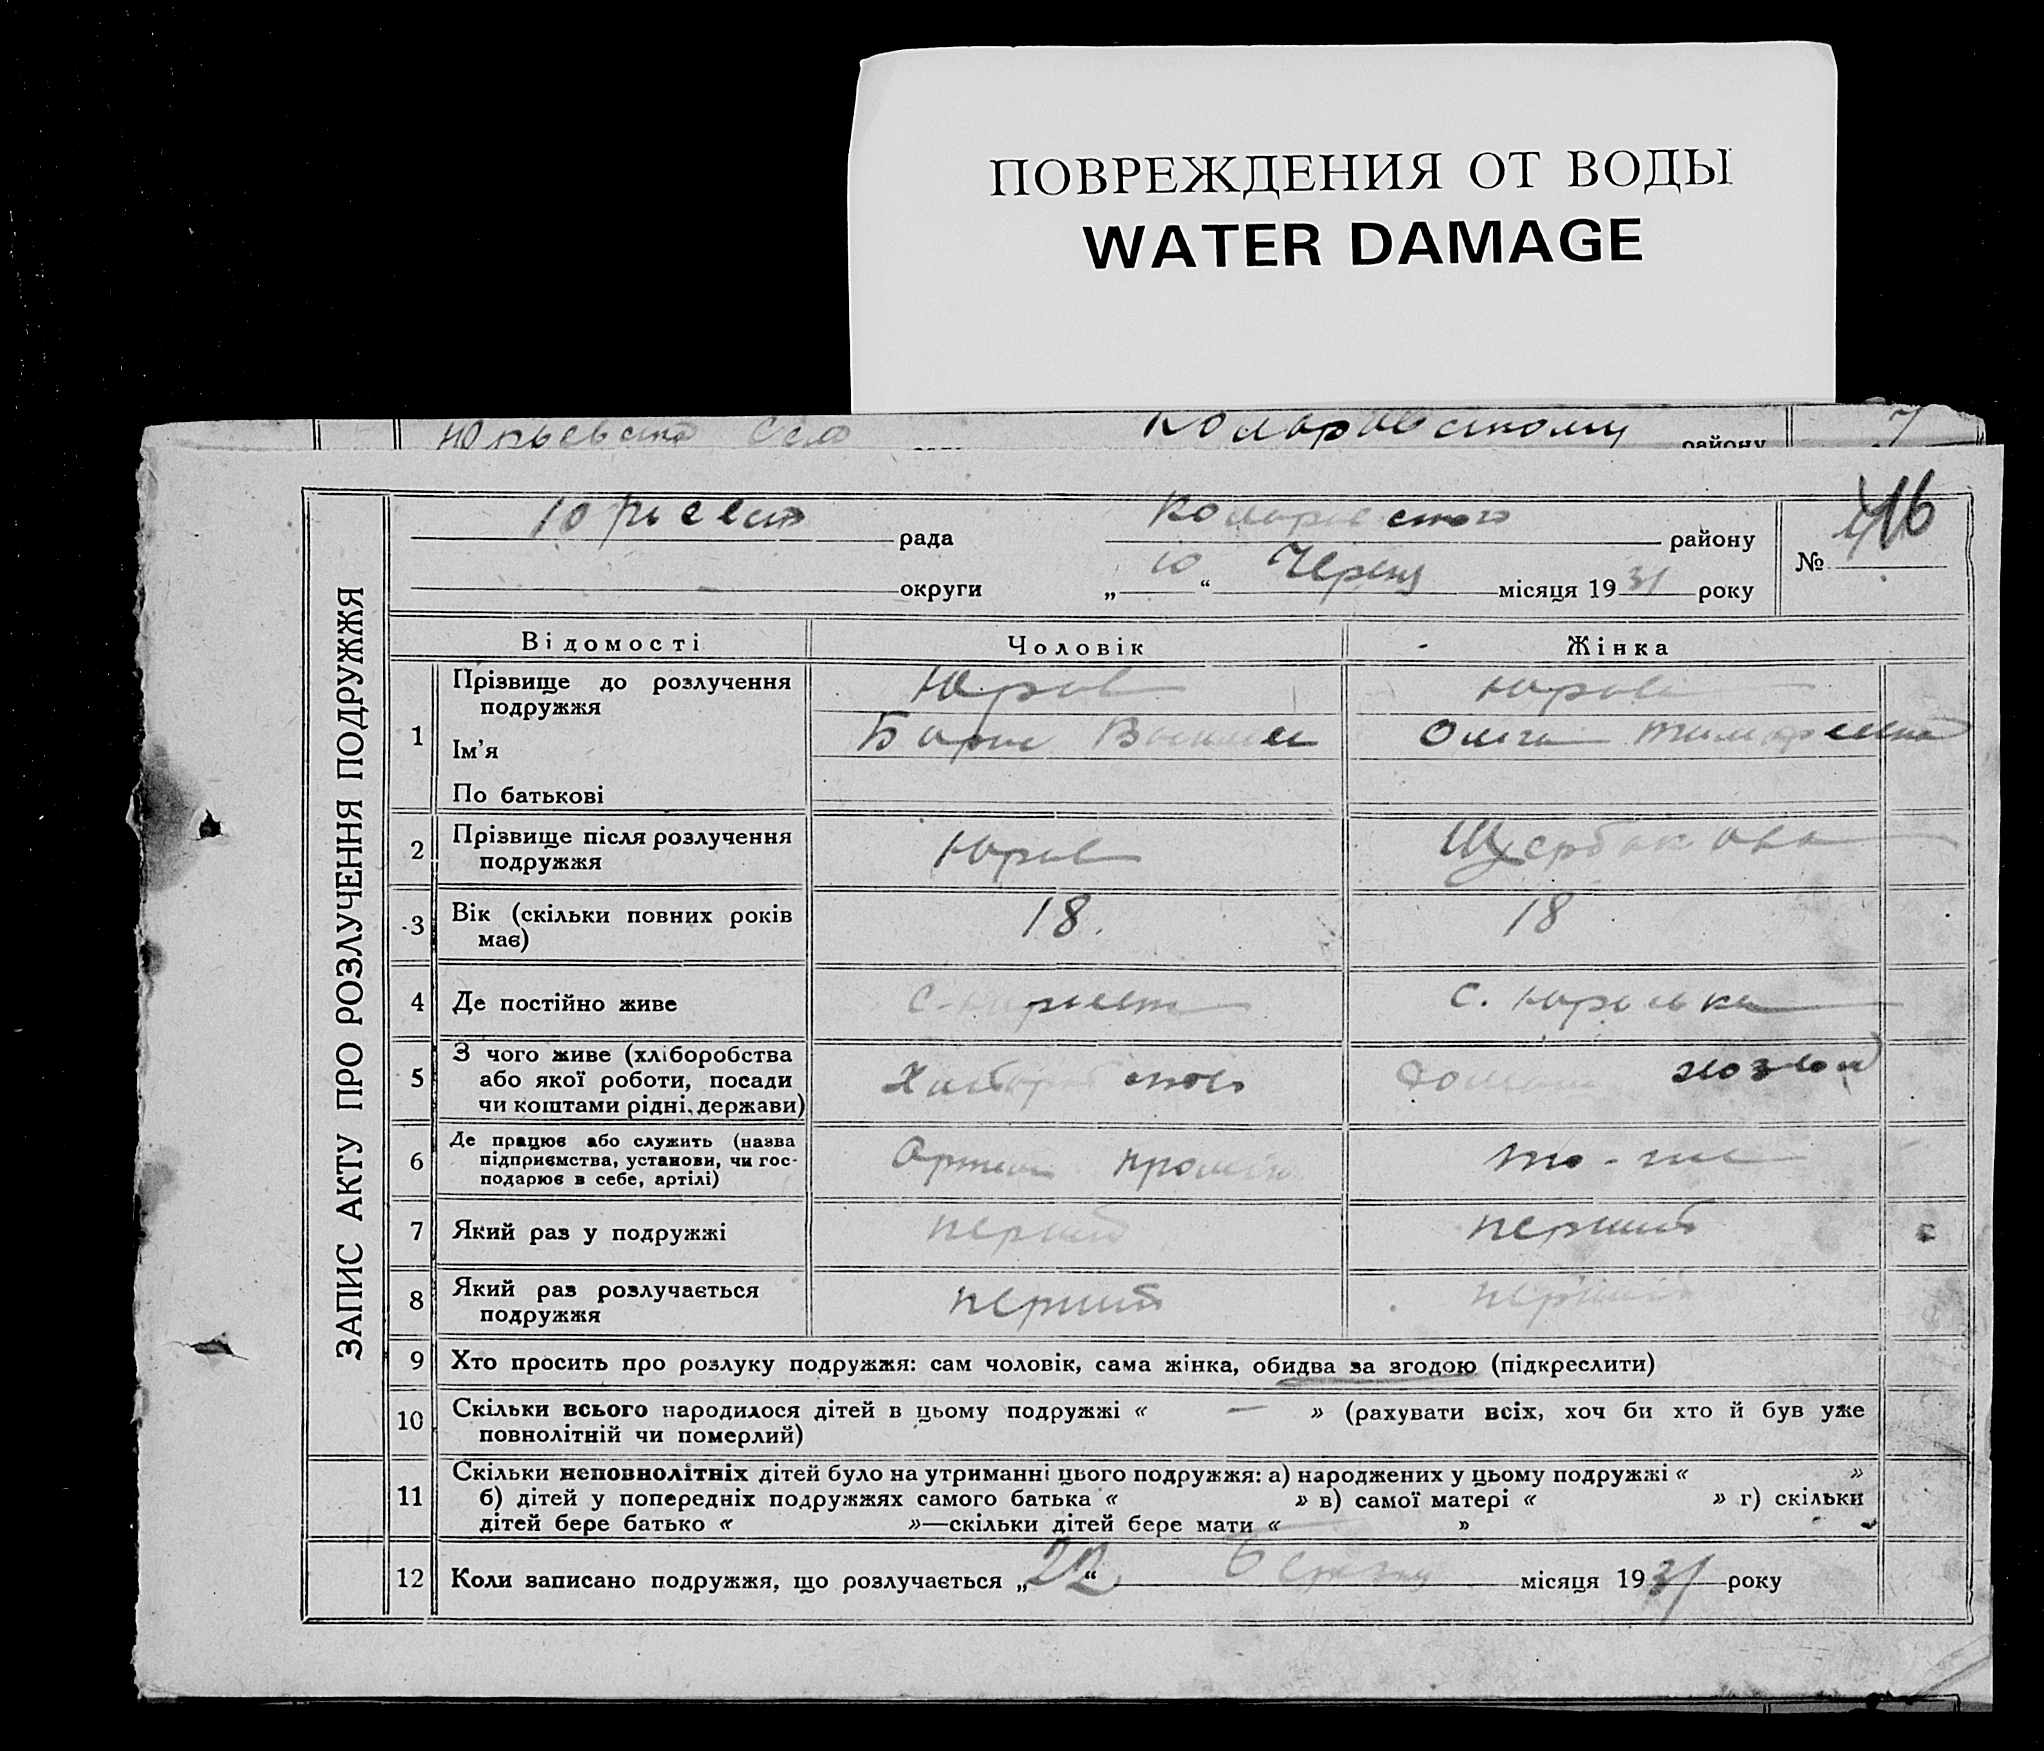 ПОВРЕЖДЕНИЯ ОТ ВОДЫ
WATER DAMAGE
Коларовському району 7
ЗАПИС АКТУ ПРО РОЗЛУЧЕННЯ ПОДРУЖЖЯ
рада Коларовского району
№ 46
округи „ 10 “ Червня місяця 1931 року
Відомості Чоловік Жінка
1 Прізвище до розлучення подружжя Юров Юрова
Ім’я Борис Ольга
По батькові
2 Прізвище після розлучення подружжя Юров Щербакова
3 Вік (скільки повних років має) 18. 18
4 Де постійно живе с. с.
5 З чого живе (хліборобства або якої роботи, посади чи коштами рідні, держави)
6 Де працює або служить (назва підприємства, установи, чи господарює в себе, артілі) то-же
7 Який раз у подружжі перший перший
8 Який раз розлучається подружжя перший перший
9 Хто просить про розлуку подружжя: сам чоловік, сама жінка, обидва за згодою (підкреслити)
10 Скільки всього народилося дітей в цьому подружжі « — » (рахувати всіх, хоч би хто й був уже
повнолітній чи померлий)
11 Скільки неповнолітніх дітей було на утриманні цього подружжя: а) народжених у цьому подружжі « »
б) дітей у попередніх подружжях самого батька « » в) самої матері « » г) скільки
дітей бере батько « »—скільки дітей бере мати « »
12 Коли записано подружжя, що розлучається „ 22 “ місяця 1931 року